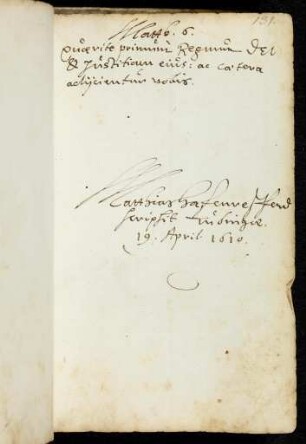 131.
Matth. 6.
quaerite primum Regnum Dei
& Justitiam eius: ac caetera
adijcientur vobis.
Matthias Hafenreffer D
scripsit Tubingae.
19. April 1610.